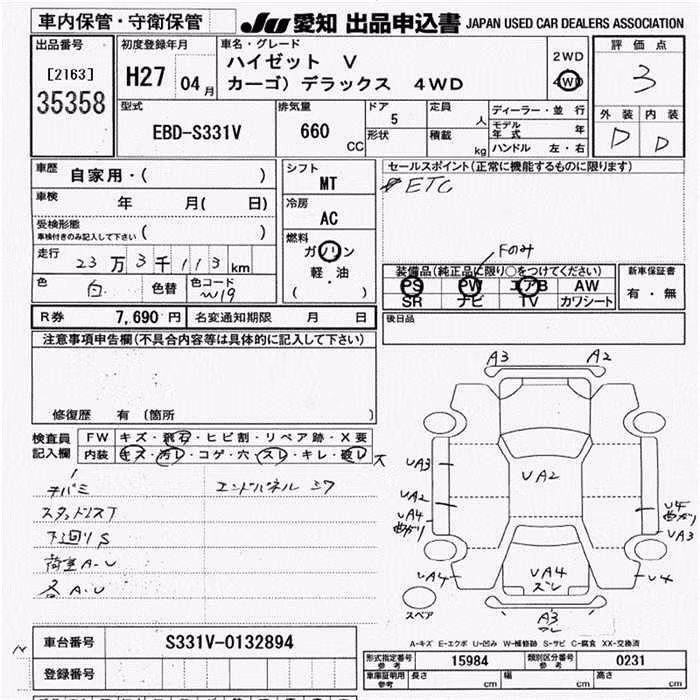 車内保管・守衛保管
JU 愛知 出品申込書 JAPAN USED CAR DEALERS ASSOCIATION
出品番号
[2163]
35358
初度登録年月
H27 04月
車名・グレード
ハイゼット V
カーゴ) デラックス 4WD
2WD
4WD
評価点
3
外装 内装
D D
型式
EBD-S331V
排気量
660
CC
ドア
5
形状
定員
人
積載
kg
ディーラー・並行
モデル年式 年
ハンドル 左・右
車歴
自家用・( )
車検
年 月( 日)
受検形態
車検付きのみ記入して下さい ( )
走行
23万3千113km
色
白
色替
色コード
W19
シフト
MT
冷房
AC
燃料
ガソリン
軽・油
( )
セールスポイント(正常に機能するものに限ります)
ETC
Fのみ
装備品(純正品に限り○をつけてください)
PS PW エアB AW
SR ナビ TV カワシート
新車保証書
有・無
後日品
R券 7,690円 名変通知期限 月 日
注意事項申告欄(不具合内容等は具体的に記入して下さい)
修復歴 有 (箇所 )
検査員
記入欄
FW キズ・飛石・ヒビ割・リペア跡・X要
内装 キズ・汚レ・コゲ・穴・スレ・キレ・破レ 大
エンドパネル シワ
下回りS
荷室A-U
各A-U
A3 A2
UA3
UA2
UA2
UA4
曲がり
U4
曲がり
UA3
UA4
UA4
ズレ
U4
A3
スペア
A-キズ E-エクボ U-凹み W-補修跡 S-サビ C-腐食 XX-交換済
車台番号 S331V-0132894
登録番号
形式指定番号
参考
15984
類別区分番号
参考
0231
車庫証明用
参考
長さ cm
幅 cm
高さ cm